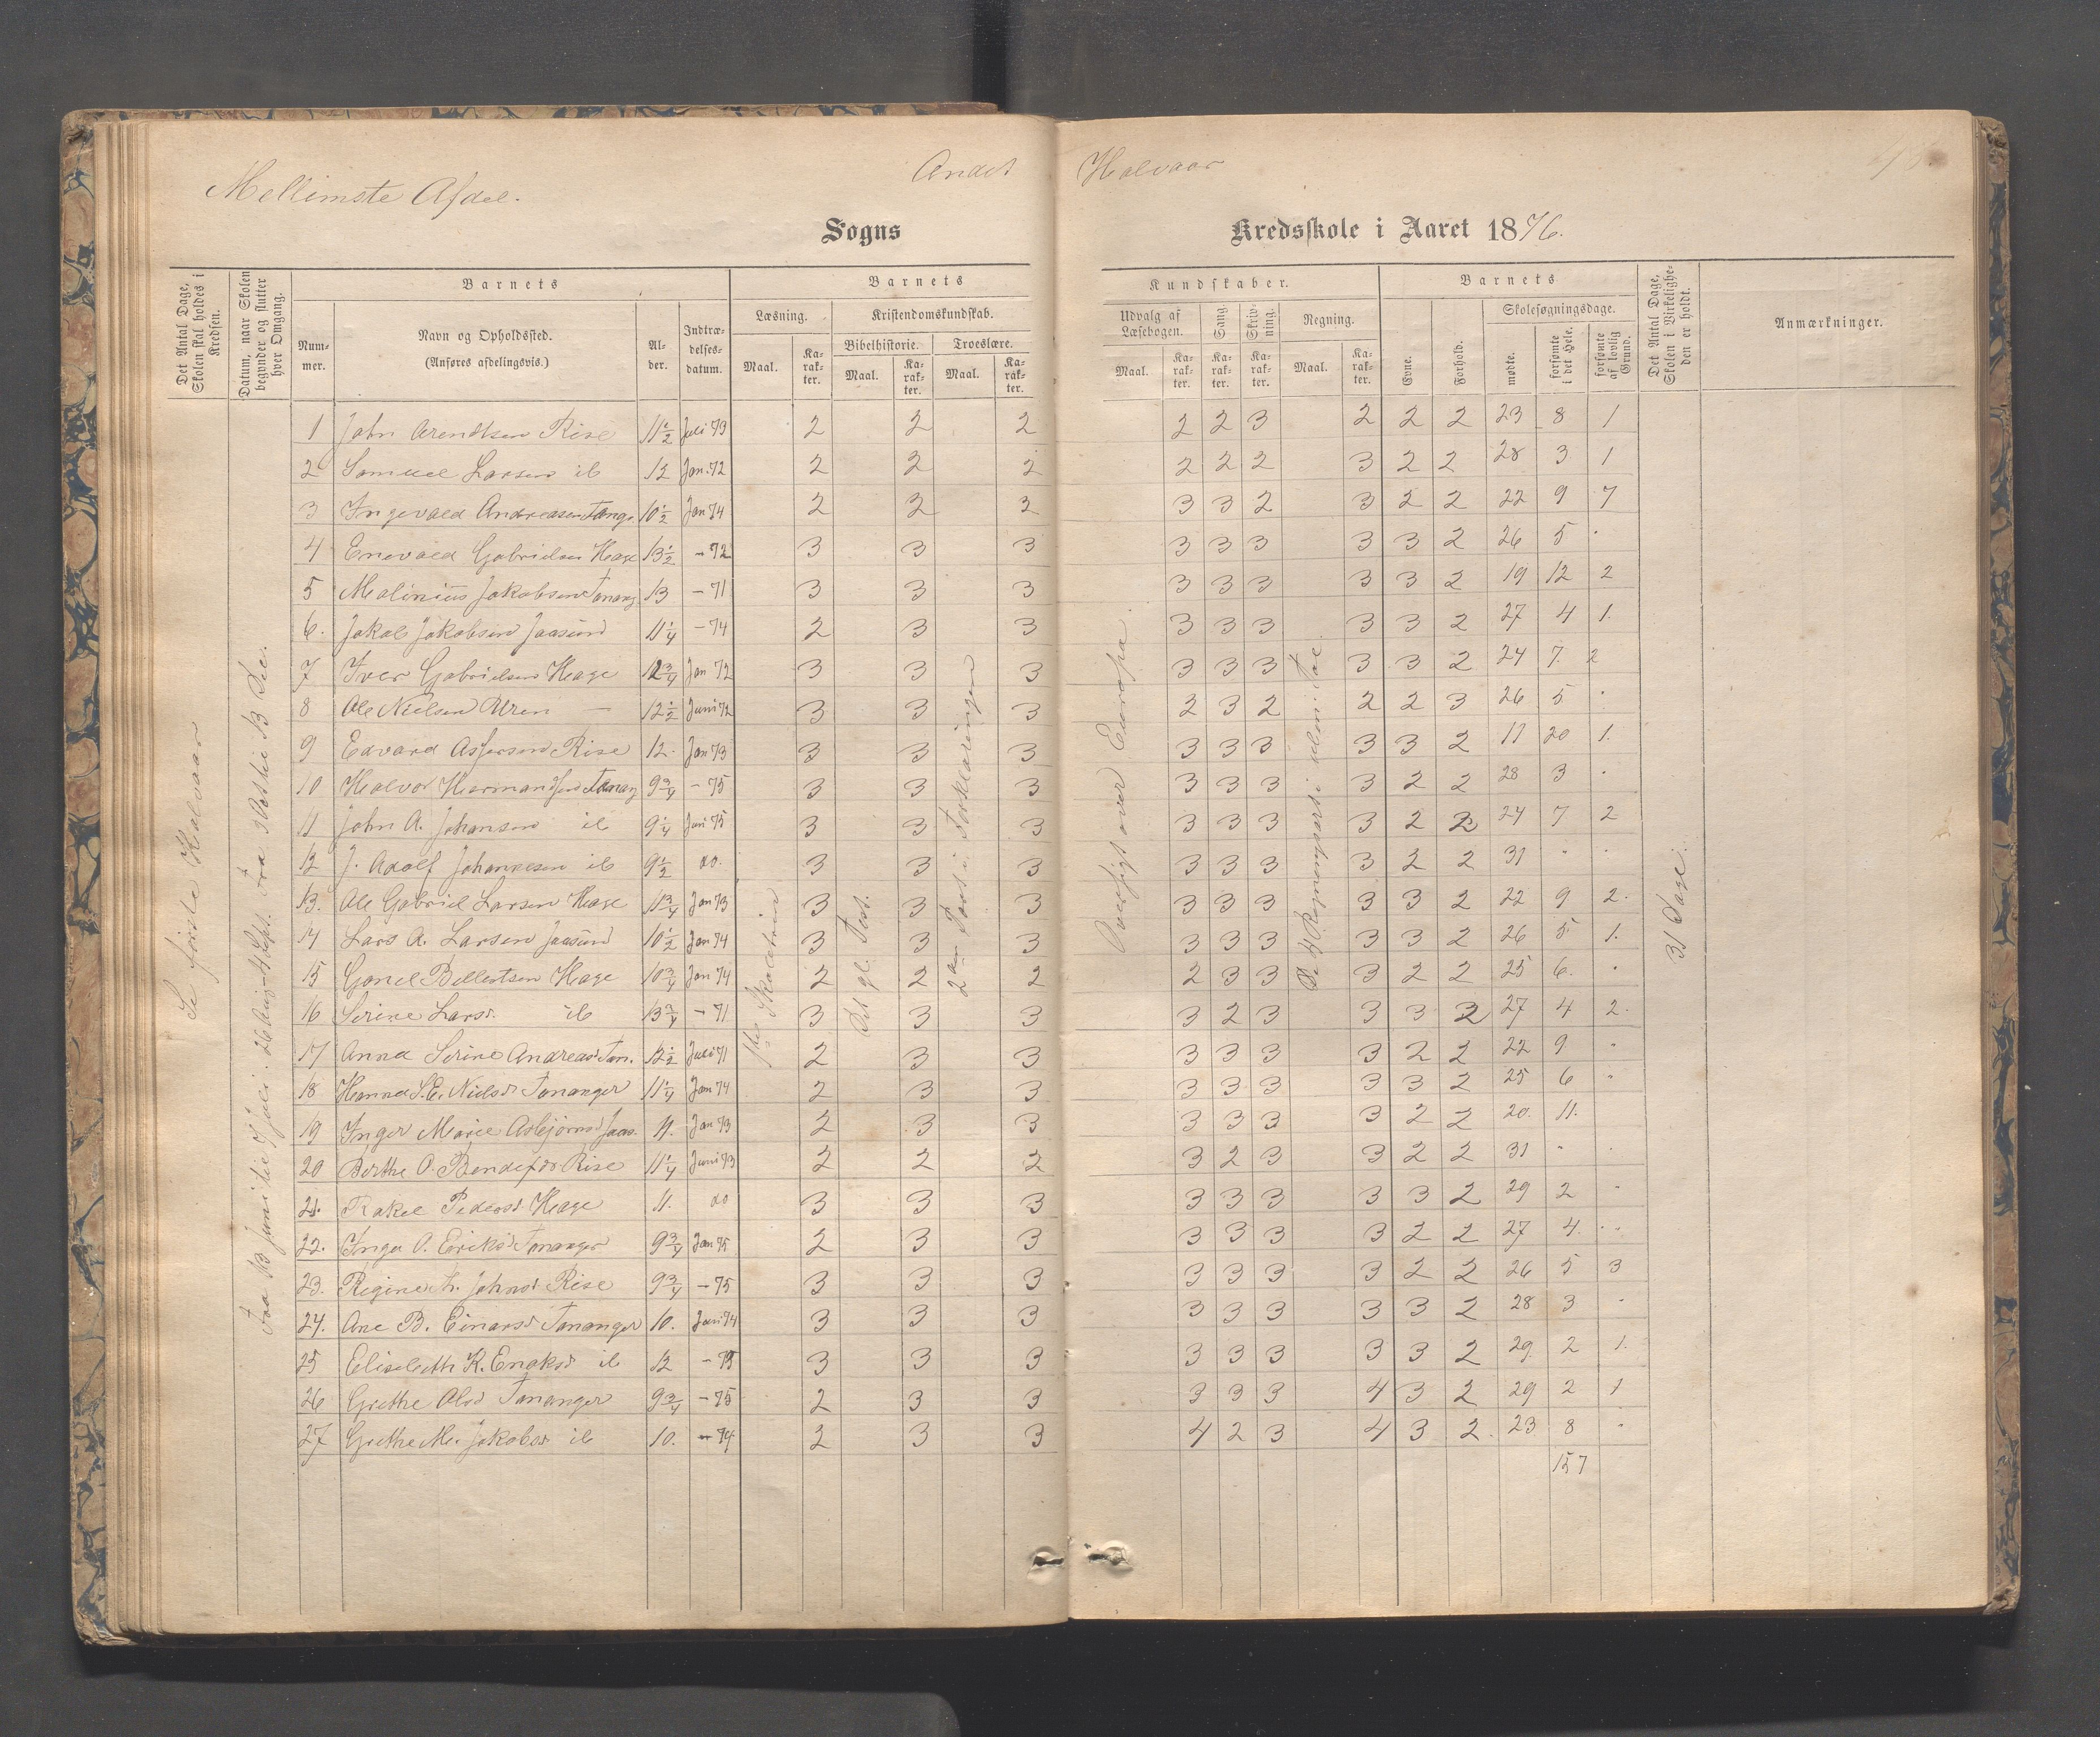 Mellemste Afdel.
Andet Halvaar
Sogns Kredsskole i Aaret 1876.
Det Antal Dage, Skolen skal holdes i Kredsen.
Datum, naar Skolen begynder og slutter hver Omgang.
Barnets
Num-mer.
Navn og Opholdssted.
(Anføres afdelingsvis.)
Al-der.
Indtræ-delses-datum.
Barnets
Læsning.
Kristendomskundskab.
Maal.
Ka-rak-ter.
Bibelhistorie.
Troeslære.
Maal.
Ka-rak-ter.
Maal.
Ka-rak-ter.
Kundskaber.
Udvalg af Læsebogen.
Sang.
Skriv-ning.
Regning.
Maal.
Ka-rak-ter.
Ka-rak-ter.
Ka-rak-ter.
Maal.
Ka-rak-ter.
Barnets
Evne.
Forhold.
Skolesøgningsdage.
mødte.
forsømte i det Hele.
forsømte af lovlig Grund.
Det Antal Dage, Skolen i Virkelighe-den er holdt.
Anmærkninger.
Se første Halvaar
1 John Arendtsen Rise 11½ Juli 73 2 2 2 2 2 3 2 2 2 23 8 1
2 Samuel Larsen ib 12 Jan. 72 2 2 2 2 2 2 3 2 2 28 3 1
3 Ingevald Andreasen Tang. 10½ Jan 74 2 2 2 3 3 2 3 2 2 22 9 7
4 Enevald Gabrielsen Hage 13½ - 72 3 3 3 3 3 3 3 3 2 26 5 "
5 Malinius Jakobsen Tanang 13 - 71 3 3 3 3 3 3 3 3 2 19 12 2
6. Jakob Jakobsen Jaasund 11¼ - 74 2 3 3 3 3 3 3 3 2 27 4 1.
7 Iver Gabrielsen Hage 12¾ Jan 72 3 3 3 3 3 3 3 3 2 24 7. 2
8 Ole Nielsen Uren — 12½ Juni 72 3 3 3 2 3 2 2 2 3 26 5 "
9 Edvard Asjersen Rise 12. Jan 73 3 3 3 3 3 3 3 3 2 11 20 1.
10 Halvor Hermandsen Tanang 9¾ - 75 3 3 3 3 3 3 3 2 2 28 3 "
11 John A. Johansen ib 9¼ Juni 75 3 3 3 3 3 3 3 2 2 24 7 2
12 J. Adolf Johannesen ib 9½ do. 3 3 3 3 3 3 3 2 2 31 " "
13. Ole Gabriel Larsen Hage 11¾ Jan 73 3 3 3 3 3 3 3 3 2 22 9 2.
14 Lars A. Larsen Jaasund 10½ Jan 74 3 3 3 3 3 3 3 3 2 26 5 1.
15 Gonel Bellestsen Hage 10¾ Jan 74 2 2 2 2 3 3 3 2 2 25 6. "
16 Serine Larsd. ib 13¾ - 71 3 3 3 3 2 3 3 3 2 27 4 2.
17 Anna Serine Andreasd. Tan. 12½ Juli 71 2 3 3 3 3 3 3 2 2 22 9 "
18 Hanna S.E. Nielsd. Tananger 11¼ Jan 74 2 3 3 3 3 3 3 3 2 25 6 "
19 Inger Marie Asbjørnsd Jaas. 11. Jan 73 2 3 3 3 3 3 3 2 2 20. 11.
20 Berthe O. Bendixdr Rise 11¼ Juni 73 2 2 2 3 2 3 3 2 2 31 " "
21. Rakel Pedersd. Hage 11. do 3 3 3 3 3 3 3 3 2 29 2 "
22. Inga O. Eriksd. Tananger 9¾ Jan 75 2 3 3 3 3 3 3 2 2 27 4. "
23. Regine Johnsd. Rise 9¾ - 75 3 3 3 3 3 3 3 2 2 26 5 3
24. Ane B. Einarsd. Tananger 10. Juni 74 3 3 3 3 3 3 3 3 2 28 3 "
25 Elisabeth K. Enoksd. ib 12 - 75 3 3 3 3 3 3 3 3 2 29. 2 1.
26 Grethe Olsd Tananger 9¾ - 75 2 3 3 3 3 3 4 3 2 29 2 1
27 Grethe M. Jakobsd. ib 10. - 74 2 3 3 4 2 3 4 3 2. 23 8 "
157
Det gl. Test.
2den Part i Forklaringen
Oversigt over Europa.
31 Dage.